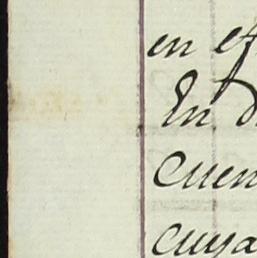 en ef
En d
Cuen
cuya